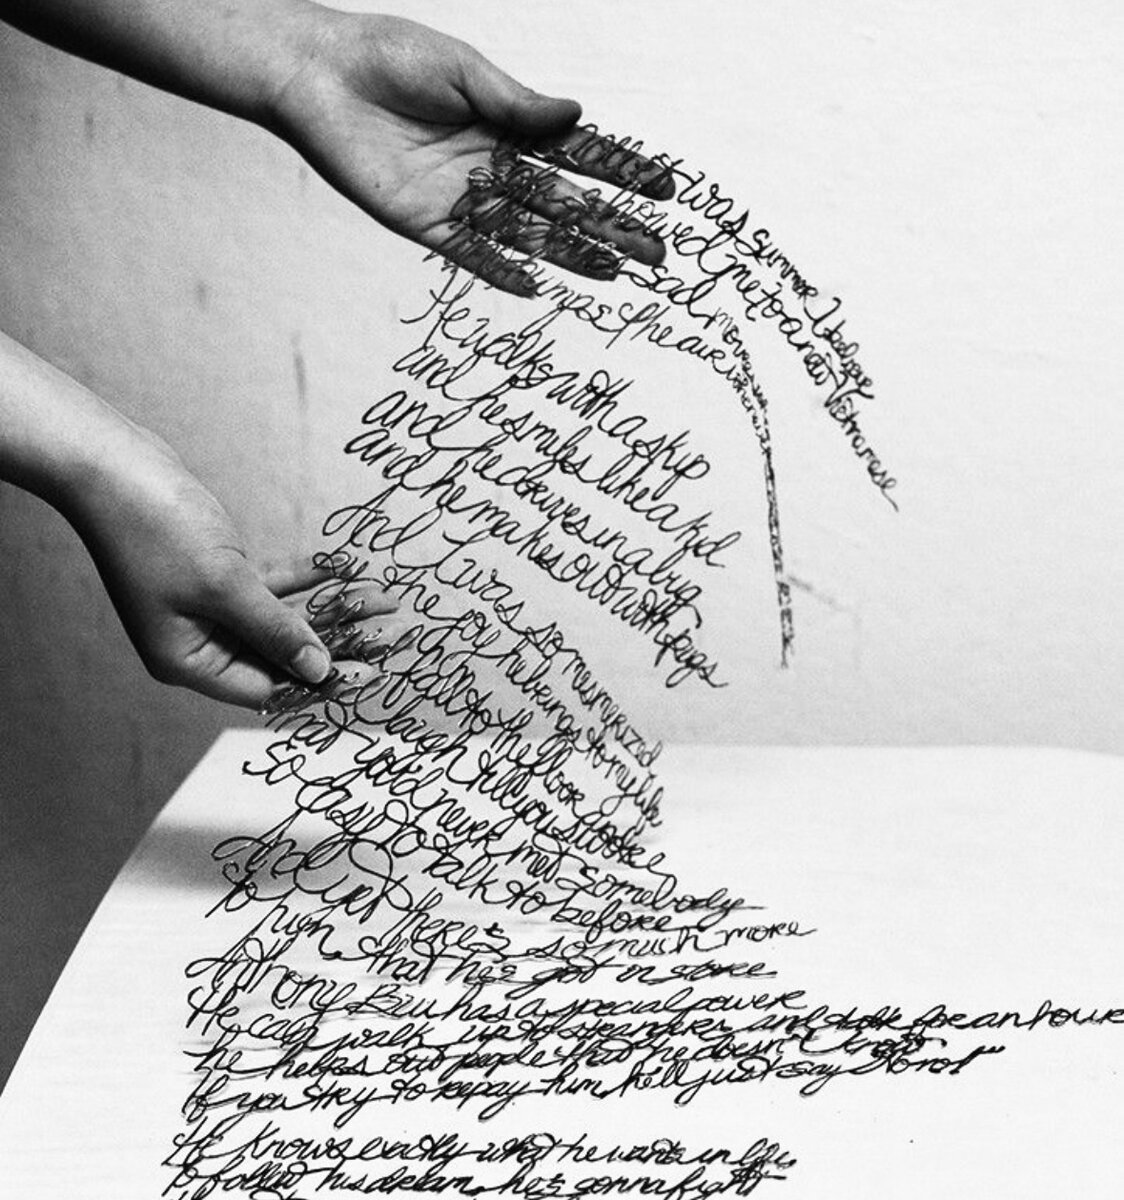 it was summer I believe
showed me to a new Vietnamese
sad
of the air
He walks with a skip
and he smiles like a kid
and he drives in a bug
and he makes out with pugs
And I was so mesmerized
By the joy he brings to my life
fall to the floor
laugh till you
that you'd never met somebody
So easy to talk to before
And yet there's so much more
To him, that he's got in store
Anthony Bui has a special power
He can walk up to strangers and talk for an hour
he helps out people that he doesn't know
If you try to repay him, he'll just say "No no!"
He knows exactly what he wants in life
To follow his dream, he's gonna fight